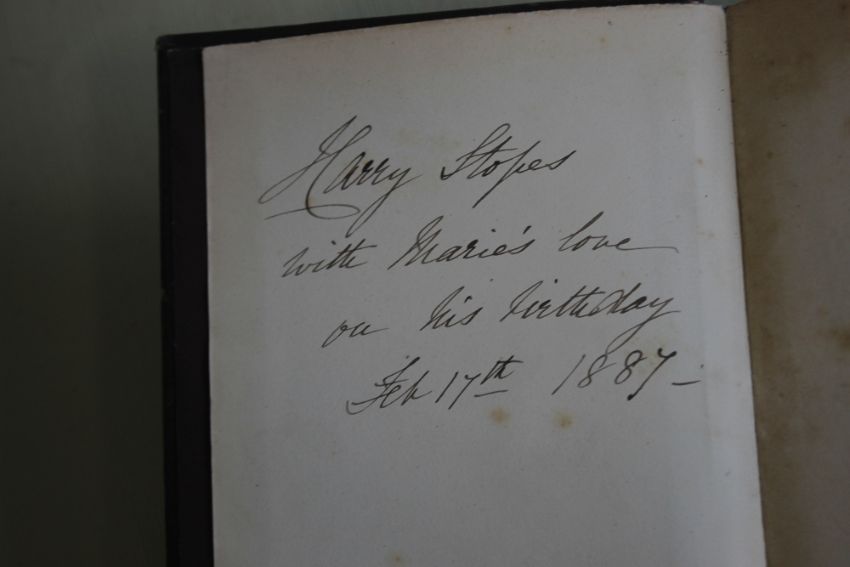 Harry Stopes
with Marie's love
on his birthday
Feb 17th 1887 -